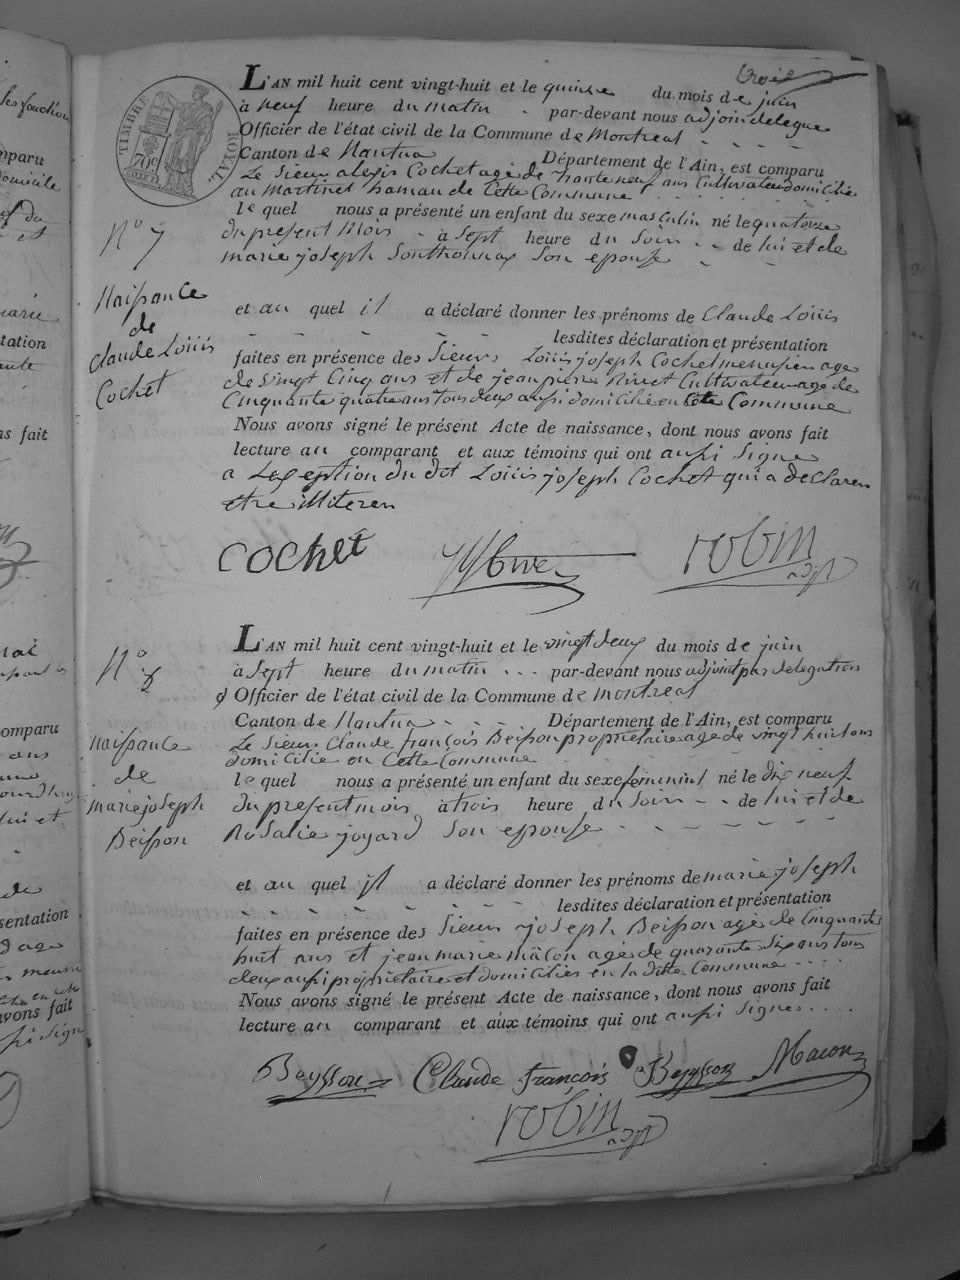 trois
TIMBRE ROYAL
70c
L'AN mil huit cent vingt-huit et le quinse du mois de juin
à neuf heure du matin par-devant nous adjoin delegue
Officier de l'état civil de la Commune de Montreal
Canton de Nantua Département de l'Ain, est comparu
Le Sieur alexis Cochet agé de trante neuf ans Cultivateur domicilie
au Martinet hamau de Cette Commune
le quel nous a présenté un enfant du sexe masculin né le quatorze
du present Mois à Sept heure du Soir de lui et de
marie joseph Sonthonnax Son epouse
N° 7
Naissance
de
Claude Loüis
Cochet
et au quel il a déclaré donner les prénoms de Claude Loüis
lesdites déclaration et présentation
faites en présence des Sieurs Loüis joseph Cochet menusier age
de Vingt Cinq ans et de jean pierre Cultivateur age de
Cinquante quatre ans tous deux aussi domicilié en Cette Commune
Nous avons signé le présent Acte de naissance, dont nous avons fait
lecture au comparant et aux témoins qui ont aussi Signe
a Lexeption du dit Loüis joseph Cochet qui a declaren
etre illiteren
Cochet
robin
adjt
N° 8
L'AN mil huit cent vingt-huit et le vingt deux du mois de juin
à Sept heure du matin par-devant nous adjoint par delegation
Officier de l'état civil de la Commune de Montreal
Canton de Nantua Département de l'Ain, est comparu
Le Sieur Claude françois Beisson proprietaire age de vingt huit ans
domicilie en Cette Commune
le quel nous a présenté un enfant du sexe feminint né le dix neuf
du present mois à trois heure du Soir de lui et de
Rosalie joyard Son epouse
naissance
de
marie joseph
Beisson
et au quel il a déclaré donner les prénoms de marie joseph
lesdites déclaration et présentation
faites en présence des Sieurs joseph Beisson age de Cinquante
huit ans et jean marie Mâcon age de quarante Six ans tous
deux aussi proprietaire et domicilies en la ditte Commune
Nous avons signé le présent Acte de naissance, dont nous avons fait
lecture au comparant et aux témoins qui ont aussi Signes
Beysson Claude françois Beysson Macon
robin
adjt